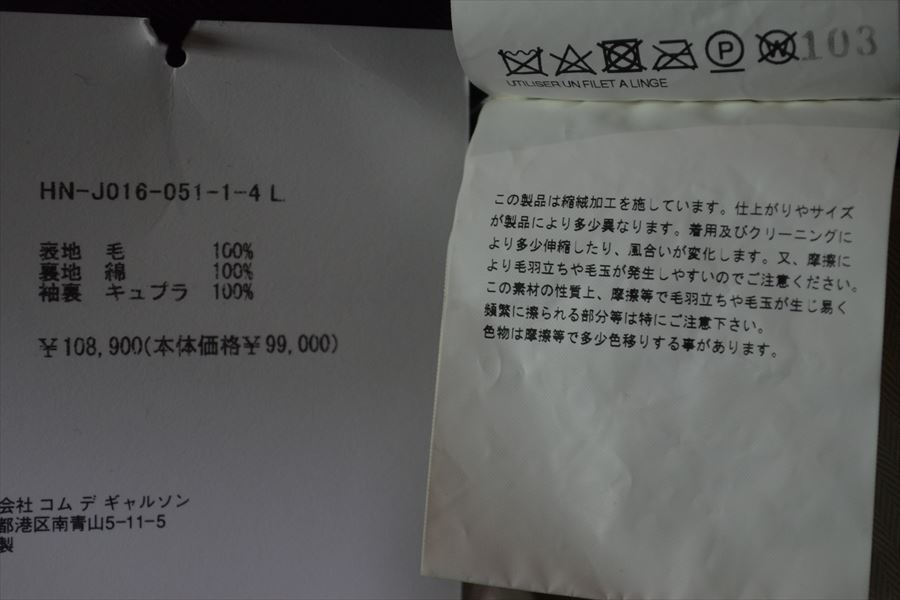 HN-J016-051-1-4 L
表地 毛 100%
裏地 綿 100%
袖裏 キュプラ 100%
¥108,900(本体価格¥99,000)
会社 コム デ ギャルソン
都港区南青山5-11-5
製
P
W
103
UTILISER UN FILET A LINGE
この製品は縮絨加工を施しています。仕上がりやサイズ
が製品により多少異なります。着用及びクリーニングに
より多少伸縮したり、風合いが変化します。又、摩擦に
より毛羽立ちや毛玉が発生しやすいのでご注意ください。
この素材の性質上、摩擦等で毛羽立ちや毛玉が生じ易く
頻繁に擦られる部分等は特にご注意下さい。
色物は摩擦等で多少色移りする事があります。